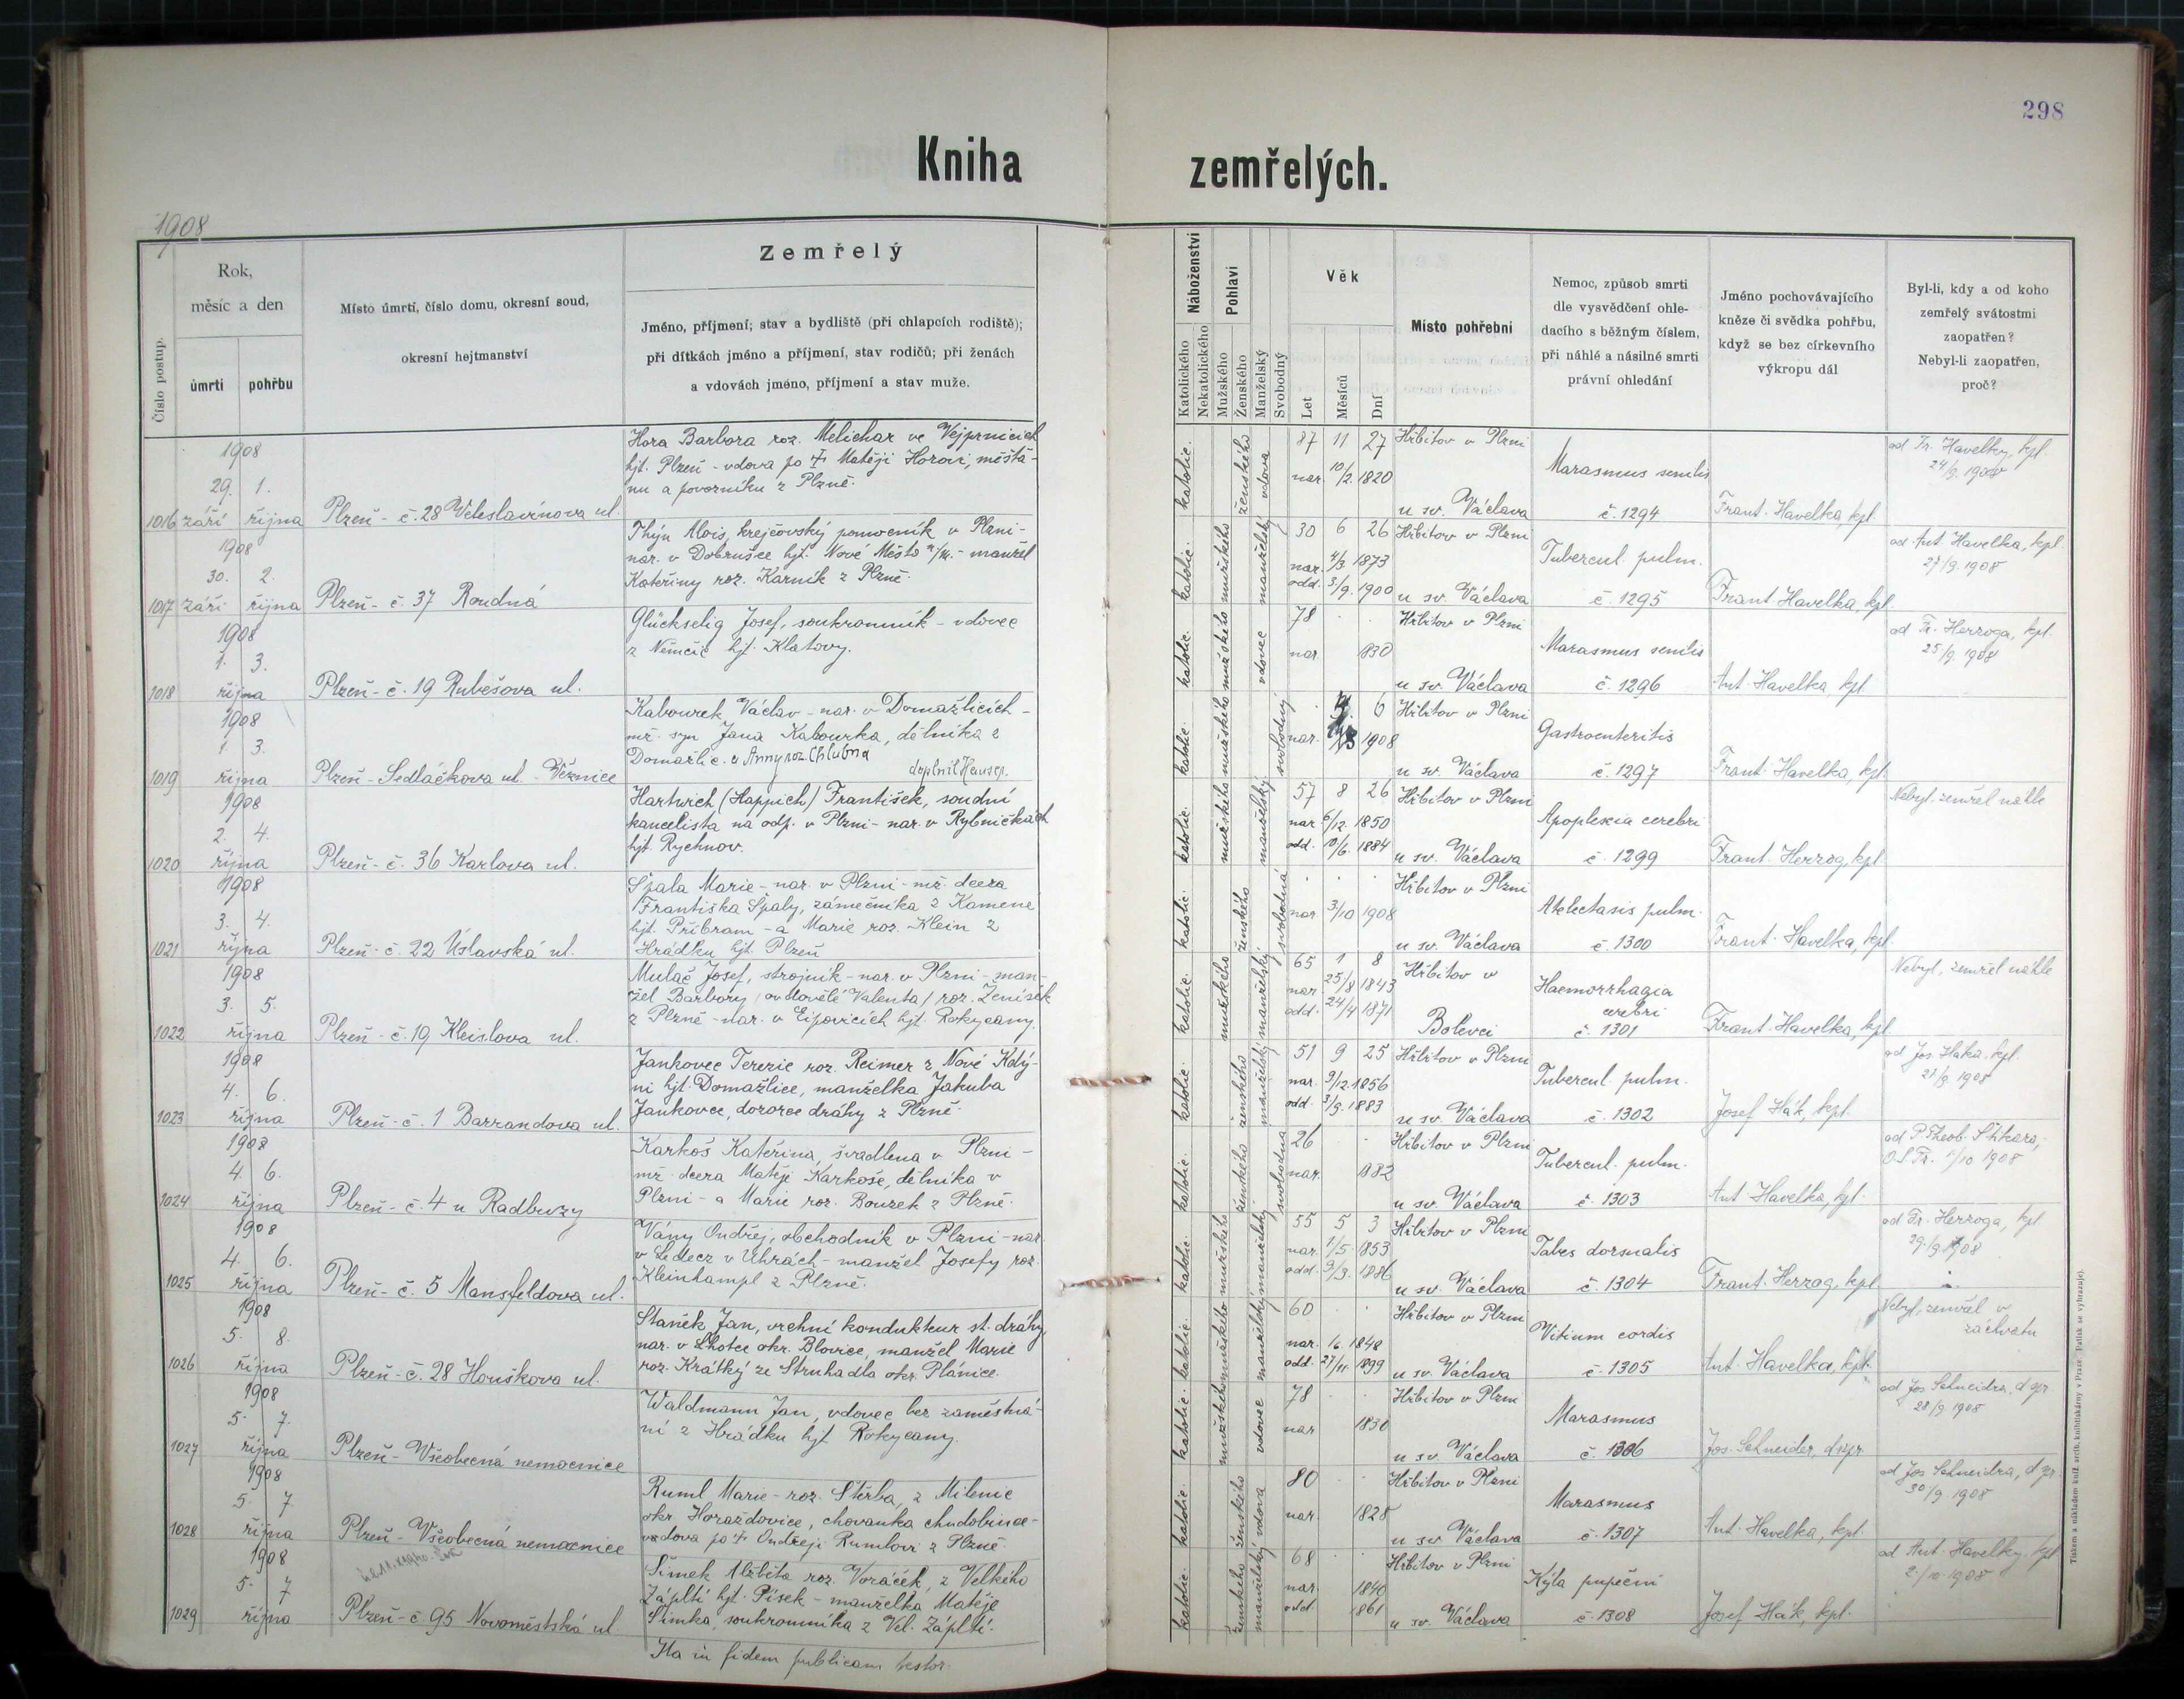 298
Kniha zemřelých.
1908
Číslo postup.
Rok,
měsíc a den
úmrtí
pohřbu
Místo úmrtí, číslo domu, okresní soud,
okresní hejtmanství
Zemřelý
Jméno, příjmení; stav a bydliště (při chlapcích rodiště);
při dítkách jméno a příjmení, stav rodičů; při ženách
a vdovách jméno, příjmení a stav muže.
Náboženství
Katolického
Nekatolického
Pohlaví
Mužského
Ženského
Manželský
Svobodný
Věk
Let
Měsíců
Dní
Místo pohřební
Nemoc, způsob smrti
dle vysvědčení ohle-
dacího s běžným číslem,
při náhlé a násilné smrti
právní ohledání
Jméno pochovávajícího
kněze či svědka pohřbu,
když se bez církevního
výkropu dál
Byl-li, kdy a od koho
zemřelý svátostmi
zaopatřen?
Nebyl-li zaopatřen,
proč?
1908
29. 1.
1016 září října
Plzeň - č. 28 Veleslavínova ul.
Hora Barbora roz. Melichar ve Vejprnicích
hjt. Plzeň - vdova po † Matěji Horovi, měšťa-
nu a povozníku z Plzně.
katolic. ženského vdova
87 11 27
nar. 10/2. 1820
Hřbitov v Plzni
u sv. Václava
Marasmus senilis
č. 1294
Frant. Havelka, kpl.
od Fr. Havelky, kpl.
24/9. 1908
1908
30. 2.
1017 září října
Plzeň - č. 37 Roudná
Thýn Alois, krejčovský pomocník v Plzni -
nar. v Dobrušce hjt. Nové Město n/M. - manžel
Kateřiny roz. Karník z Plzně.
katolic. mužského manželský
30 6 26
nar. 4/3. 1873
odd. 3/9. 1900
Hřbitov v Plzni
u sv. Václava
Tubercul. pulm.
č. 1295
Frant. Havelka, kpl.
od Ant. Havelka, kpl.
27/9. 1908
1908
1. 3.
1018 října
Plzeň - č. 19 Rubešova ul.
Glückselig Josef, soukromník - vdovec
z Němčic hjt. Klatovy.
katolic. mužského vdovec
78
nar. 1830
Hřbitov v Plzni
u sv. Václava
Marasmus senilis
č. 1296
Ant. Havelka, kpl.
od Fr. Herzoga, kpl.
25/9. 1908
1908
1. 3.
1019 října
Plzeň - Sedláčkova ul. - Věznice
Kabourek Václav - nar. v Domažlicích -
mž. syn Jana Kabourka, dělníka z
Domažlic. a Anny roz. Chlubna
doplnil Heuser.
katolic. mužského svobodný
6
nar. 1908
Hřbitov v Plzni
u sv. Václava
Gastroenteritis
č. 1297
Frant. Havelka, kpl.
1908
2. 4.
1020 října
Plzeň - č. 36 Karlova ul.
Hartwich (Happich) František, soudní
kancelista na odp. v Plzni - nar. v Rybníčkách
hjt. Rychnov.
katolic. mužského manželský
57 8 26
nar. 6/12. 1850
odd. 10/6. 1884
Hřbitov v Plzni
u sv. Václava
Apoplexia cerebri
č. 1299
Frant. Herzog, kpl.
Nebyl, zemřel náhle
1908
3. 4.
1021 října
Plzeň - č. 22 Úslavská ul.
Špala Marie - nar. v Plzni - mž. dcera
Františka Špaly, zámečníka z Kamene
hjt. Příbram - a Marie roz. Klein z
Hrádku hjt. Plzeň
katolic. ženského svobodná
nar. 3/10 1908
Hřbitov v Plzni
u sv. Václava
Atelectasis pulm.
č. 1300
Frant. Havelka, kpl.
1908
3. 5.
1022 října
Plzeň - č. 19 Kleislova ul.
Mulač Josef, strojník - nar. v Plzni - man-
žel Barbory /ovdovělé Valenta/ roz. Ženíšek
z Plzně - nar. v Ejpovicích hjt. Rokycany.
katolic. mužského manželský
65 1 8
nar. 25/8 1843
odd. 24/4 1871
Hřbitov v
Bolevci
Haemorrhagia
cerebri
č. 1301
Frant. Havelka, kpl.
Nebyl, zemřel náhle
1908
4. 6.
1023 října
Plzeň - č. 1 Barrandova ul.
Jankovec Terezie roz. Reimer z Nové Kdý-
ni hjt. Domažlice, manželka Jakuba
Jankovce, dozorce dráhy z Plzně.
katolic. ženského manželský
51 9 25
nar. 9/12. 1856
odd. 3/9. 1883
Hřbitov v Plzni
u sv. Václava
Tubercul. pulm.
č. 1302
Josef Hák, kpl.
od Jos. Háka, kpl.
28/9. 1908
1908
4. 6.
1024 října
Plzeň - č. 4 u Radbuzy
Karkoš Kateřina, švadlena v Plzni -
mž. dcera Matěje Karkoše, dělníka v
Plzni - a Marie roz. Bouzek z Plzně.
katolic. ženského svobodná
26
nar. 1882
Hřbitov v Plzni
u sv. Václava
Tubercul. pulm.
č. 1303
Ant. Havelka, kpl.
O.S.Fr. 1/10 1908
1908
4. 6.
1025 října
Plzeň - č. 5 Mansfeldova ul.
Vány Ondřej, obchodník v Plzni - nar.
v Ledecz v Uhrách - manžel Josefy roz.
Kleinhampl z Plzně.
katolic. mužského manželský
55 5 3
nar. 1/5. 1853
odd. 9/3. 1886
Hřbitov v Plzni
u sv. Václava
Tabes dorsualis
č. 1304
Frant. Herzog, kpl.
od Fr. Herzoga, kpl.
29/9. 1908
1908
5. 8.
1026 října
Plzeň - č. 28 Houškova ul.
Staněk Jan, vrchní kondukteur st. dráhy,
nar. v Lhotce okr. Blovice, manžel Marie
roz. Krátký ze Struhadla okr. Plánice.
katolic. mužského manželský
60
nar. 16. 1848
odd. 27/11. 1899
Hřbitov v Plzni
u sv. Václava
Vitium cordis
č. 1305
Ant. Havelka, kpl.
Nebyl, zemřel v
záchvatu
1908
5. 7.
1027 října
Plzeň - Všeobecná nemocnice
Waldmann Jan, vdovec bez zaměstná-
ní z Hrádku hjt. Rokycany.
katolic. mužského vdovec
78
nar. 1830
Hřbitov v Plzni
u sv. Václava
Marasmus
č. 1306
Jos. Schneider, d. spr.
od Jos. Schneidra, d. spr.
28/9. 1908
1908
5. 7.
1028 října
Plzeň - Všeobecná nemocnice
Ruml Marie - roz. Štěrba, z Milenic
okr. Horažďovice, chovanka chudobince -
vdova po † Ondřeji Rumlovi z Plzně.
katolic. ženského vdova
80
nar. 1828
Hřbitov v Plzni
u sv. Václava
Marasmus
č. 1307
Ant. Havelka, kpl.
od Jos. Schneidra, d. spr.
30/9. 1908
1908
5. 7
1029 října
Plzeň - č. 95 Novoměstská ul.
Šimek Alžběta roz. Voráček, z Velkého
Zápltí hjt. Písek - manželka Matěje
Šimka, soukromníka z Vel. Zápltí.
katolic. ženského manželský
68
nar. 1840
odd. 1861
Hřbitov v Plzni
u sv. Václava
Kýla pupeční
č. 1308
Josef Hák, kpl.
od Ant. Havelky, kpl.
2/10. 1908
Ita in fidem publicam testor.